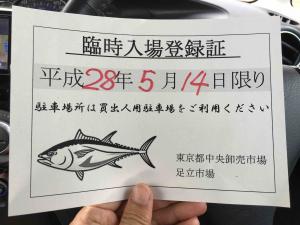 臨時入場登録証
平成28年5月14日限り
駐車場所は買出人用駐車場をご利用ください
東京都中央卸売市場
足立市場